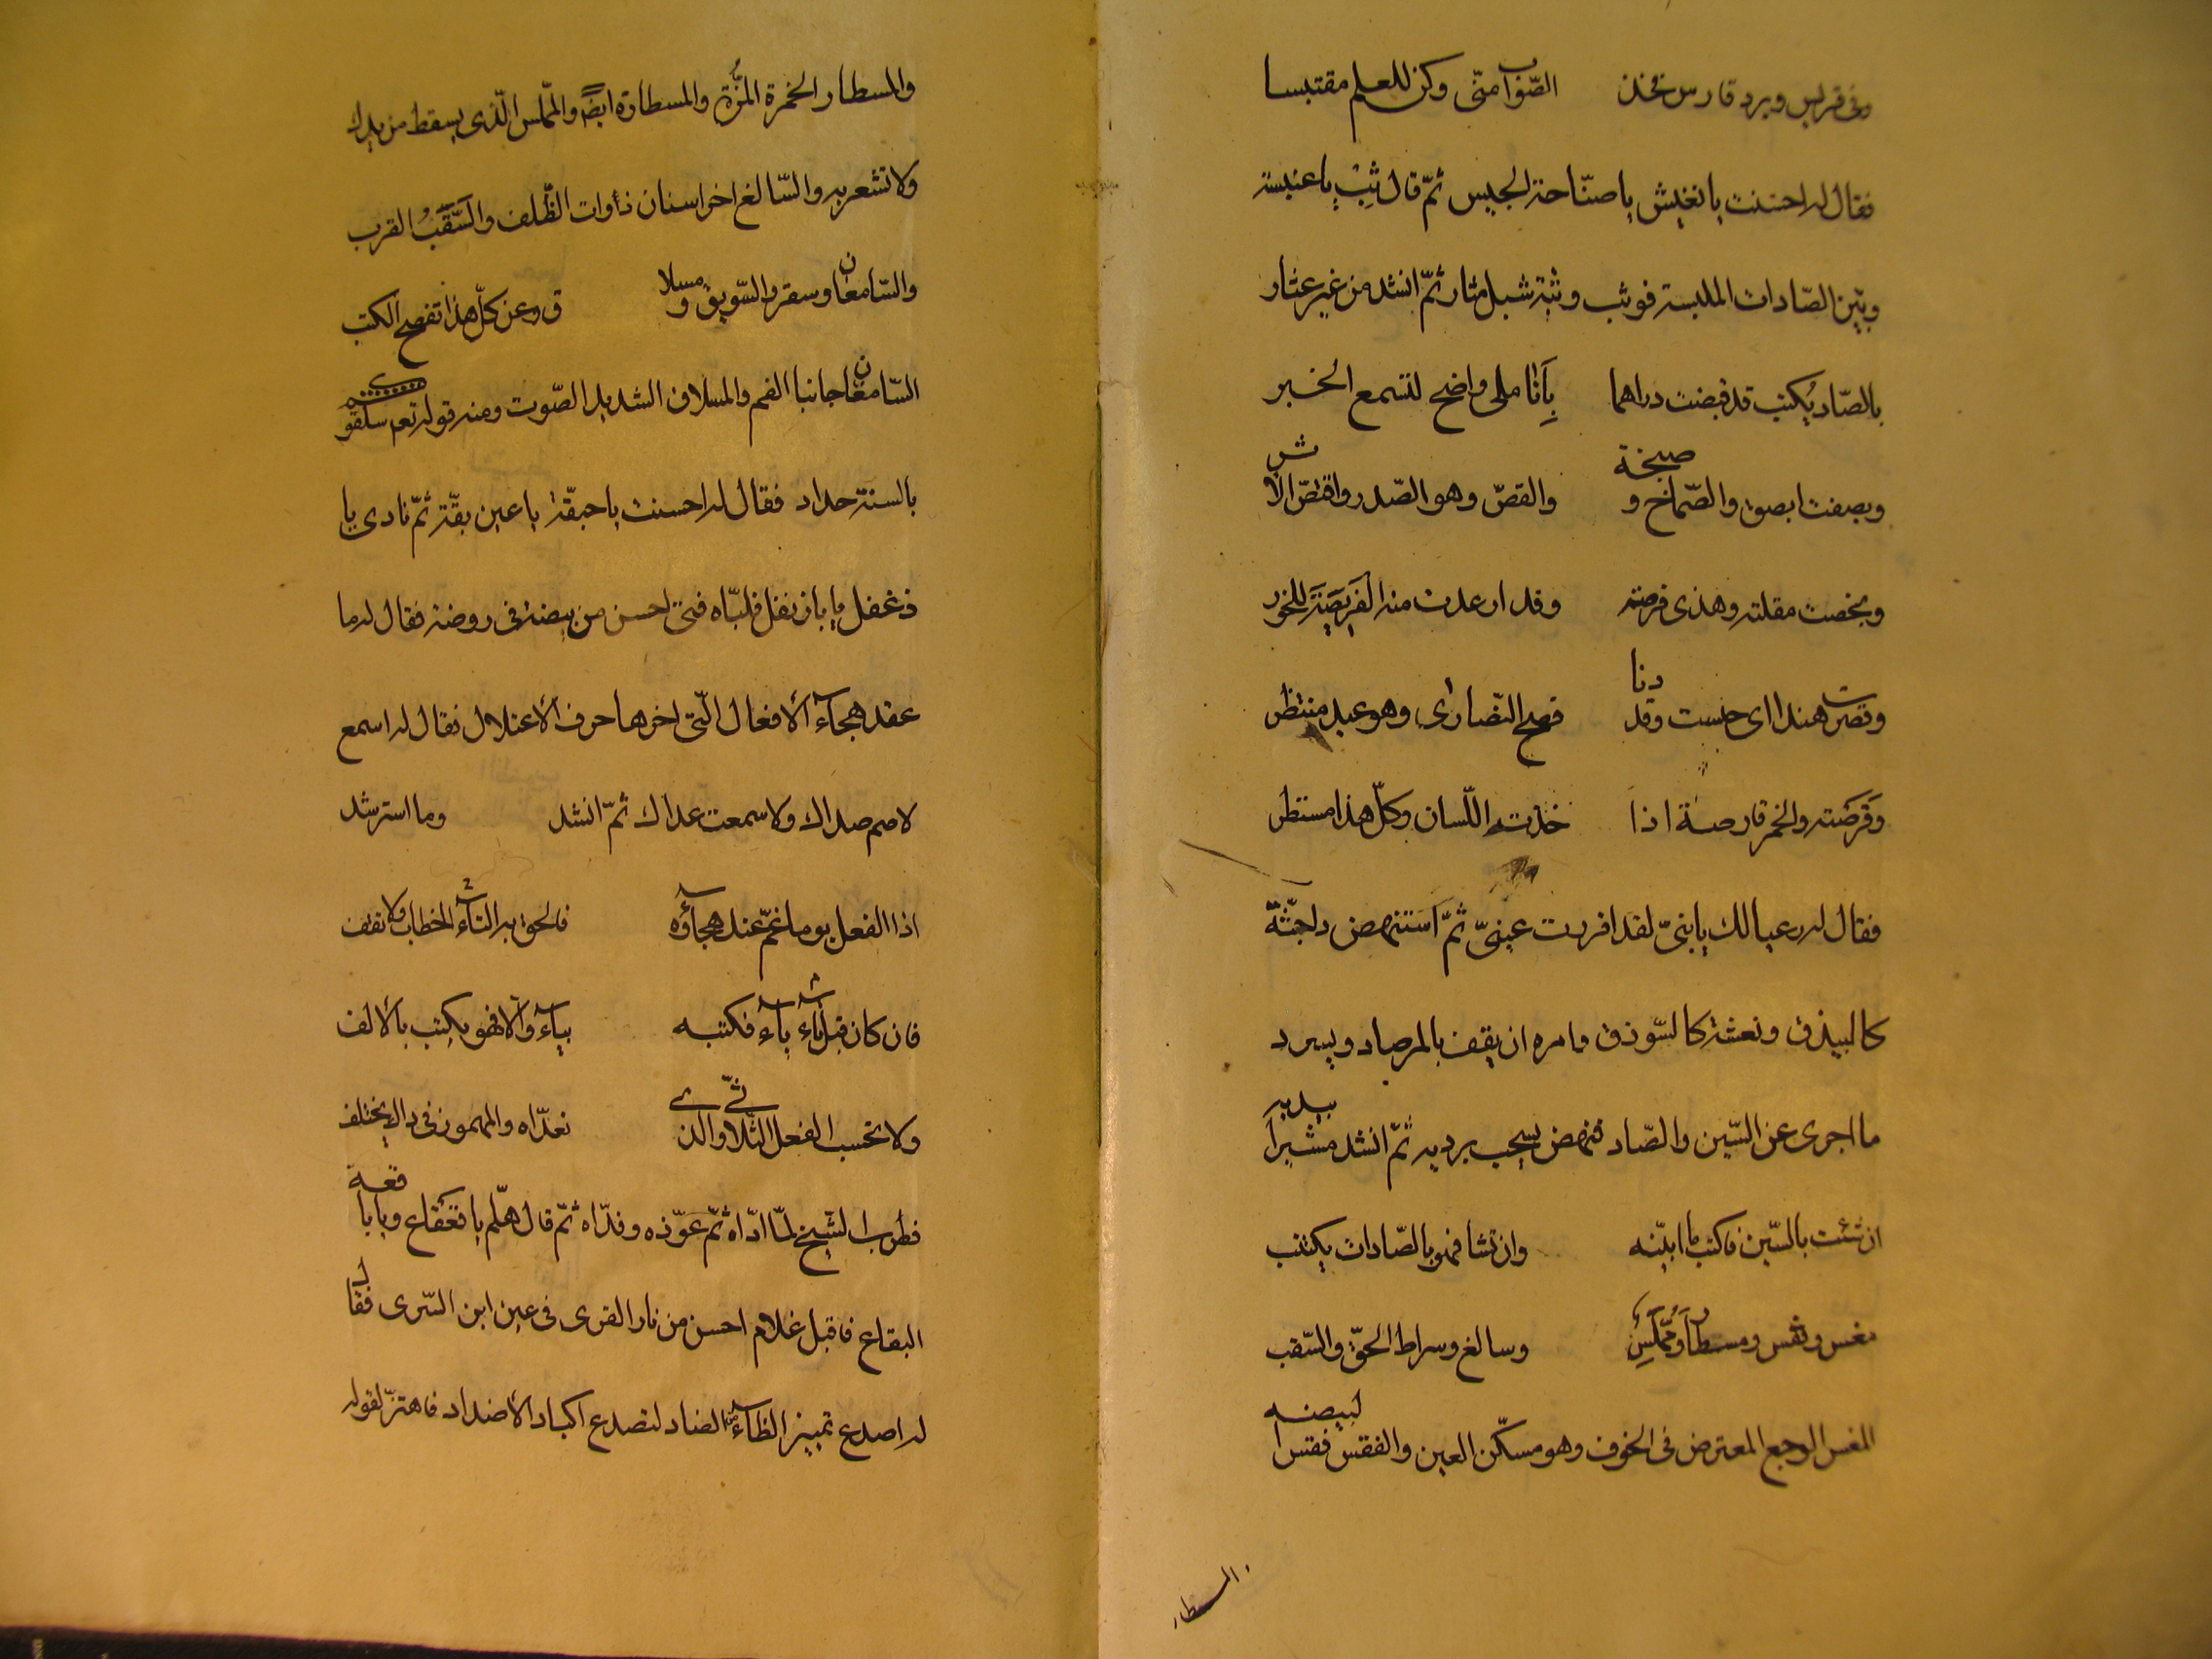 وفى قريس وبرد قارس فخذ الصّواب منّى وكن للعلم مقتبسا
فقال له احسنت يا نغيش يا صنّاجة الجيش ثمّ قال ثِبْ يا عنبسة
وبيّن الصّادات الملبسة فوثب وثبة شبل مثار ثمّ انشد من غير عثار
بالصّاد يُكتب قد قبضت دراهما بِأنا ملى واضح لتسمع الخبر
وبصقت ابصق والصّماخ و صبخة والقصّ وهو الصّدر واقتصّ الاثر
وبخصت مقلته وهذى فرصة وقد ارعدت منه الفَرِيصَةَ للخور
وقصرت هندا اى حبست وقد دنا فصح النّصارى وهو عيد منتظر
وقَرَصَته والخمر قارصة اذا حذت اللّسان وكلّ هذا مستطر
فقال له رعيا لك يا بنىّ لقد اقررت عينىّ ثمّ استنهض ذا جثّة
كالبيذق ونعشة كالسّوذق وامره ان يقف بالمرصاد ويسرد
ما اجرى عن السّين والصّاد فنهض يسحب برديه ثمّ انشد مشيرا بيديه
ان شئت بالسّين فاكتب ما ابيّنه وان تشا فهو بالصّادات يكتتب
مغس وفقس ومسطار ومُمَّلَسِ وسالغ وسراط الحقّ والسّقب
المغس الوجع المعترض فى الجوف وهو مسكّن العين والفقس فقس البيضه
والمسطار
والمسطار الخمرة المُزّة والمسطارة ايضًا والمّملس الّذى يسقط من يدك
ولا تشعر به والسّالغ اخر اسنان ذوات الظّلف والسَّقَبُ القرب
والسّامغان وسقر والسّويق ومسلا ق وعن كلّ هذا تفصح الكتب
السّامغان جانبا الفم والمسلاق الشديد الصّوت ومنه قوله تعم سلقوكم
بالسنة حداد فقال له احسنت يا حبقّة يا عين بقّة ثمّ نادى يا
دغفل يا با زنفل فلبّاه فتى احسن من بيضة فى روضة فقال له ما
عقد هجآء الافعال الّتى اخرها حرف الاعتلال فقال له اسمع
لا صم صداك ولا سمعت عداك ثمّ انشد وما استرشد
اذا الفعل يوما غمّ عند هجاؤه فالحق به التآء الخطاب ولا تقف
فان كان قبل التاء يآء فكتبه بيآء والّا فهو يكتب بالالف
ولا تحسب الفعل الثّلاثىّ والذى تعدّاه والمهموز فى ذاك يختلف
فطرب الشّيخ لمّا ادّاه ثمّ عوّذه وفدّاه ثمّ قال هلّم يا قعقاع ويا باقعة
البقاع فاقبل غلام احسن من نار القرى فى عين ابن السّرى فقال
له اصدع تمييز الظاء من الضاد لتصدع اكباد الأضداد فاهتزّ لقوله